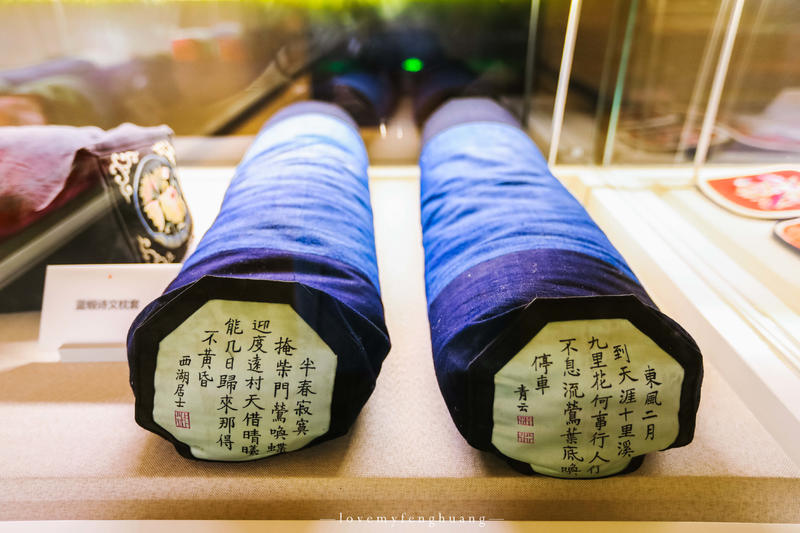 蓝缎诗文枕套
半春寂寞
掩柴門鶯喚蝶
迎度遠村天借晴曦
能几日歸來那得
不黃昏
西湖居士
東風二月
到天涯十里溪
九里花何事行人行
不息流鶯葉底喚
停車
青云
lovemyfenghuang